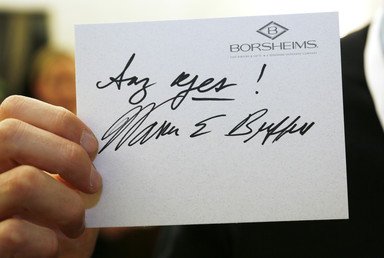 B
BORSHEIMS.
Say yes !
Warren E Buffett